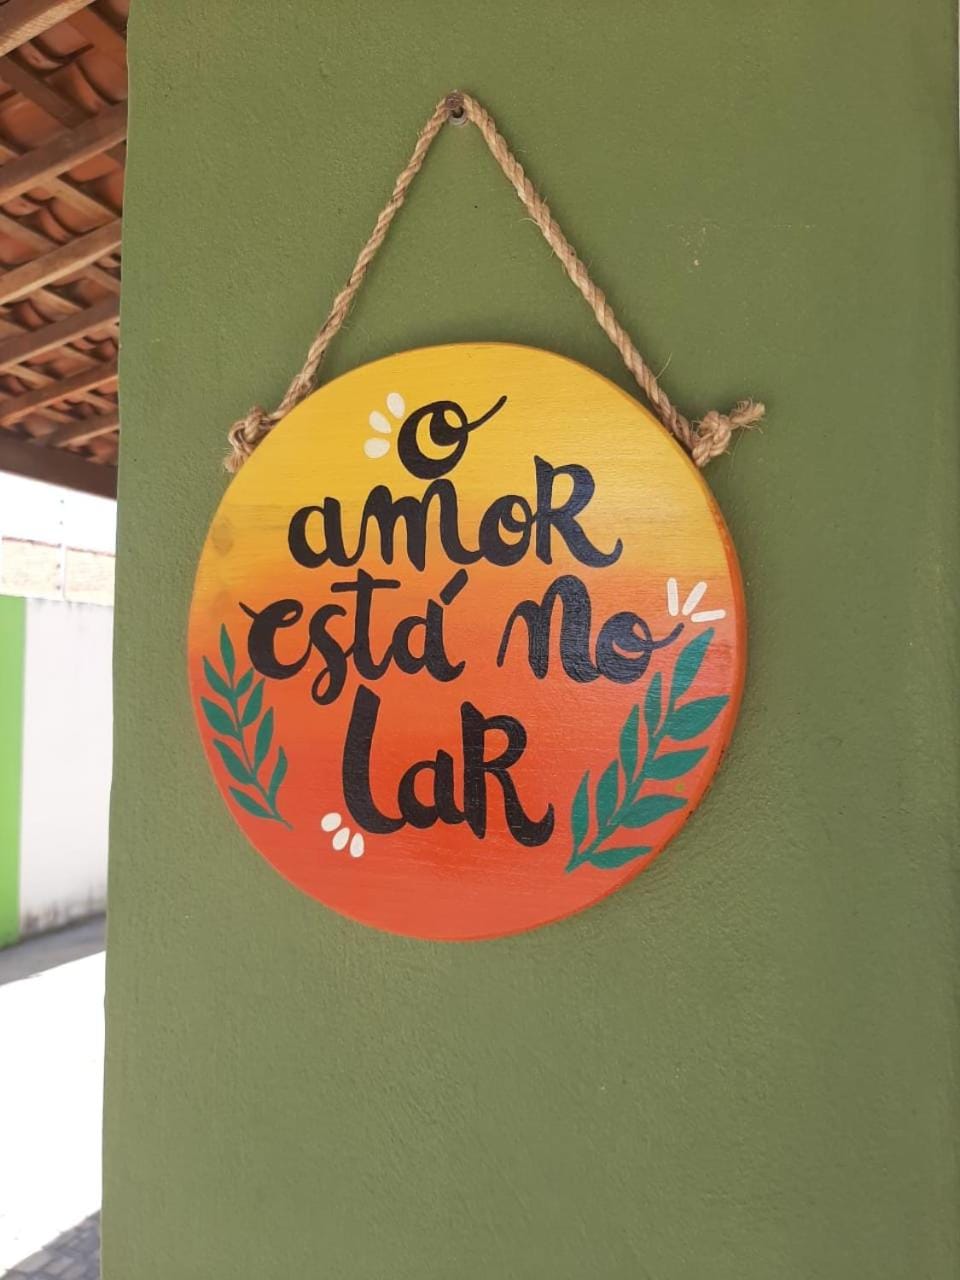 o
amoR
está no
laR